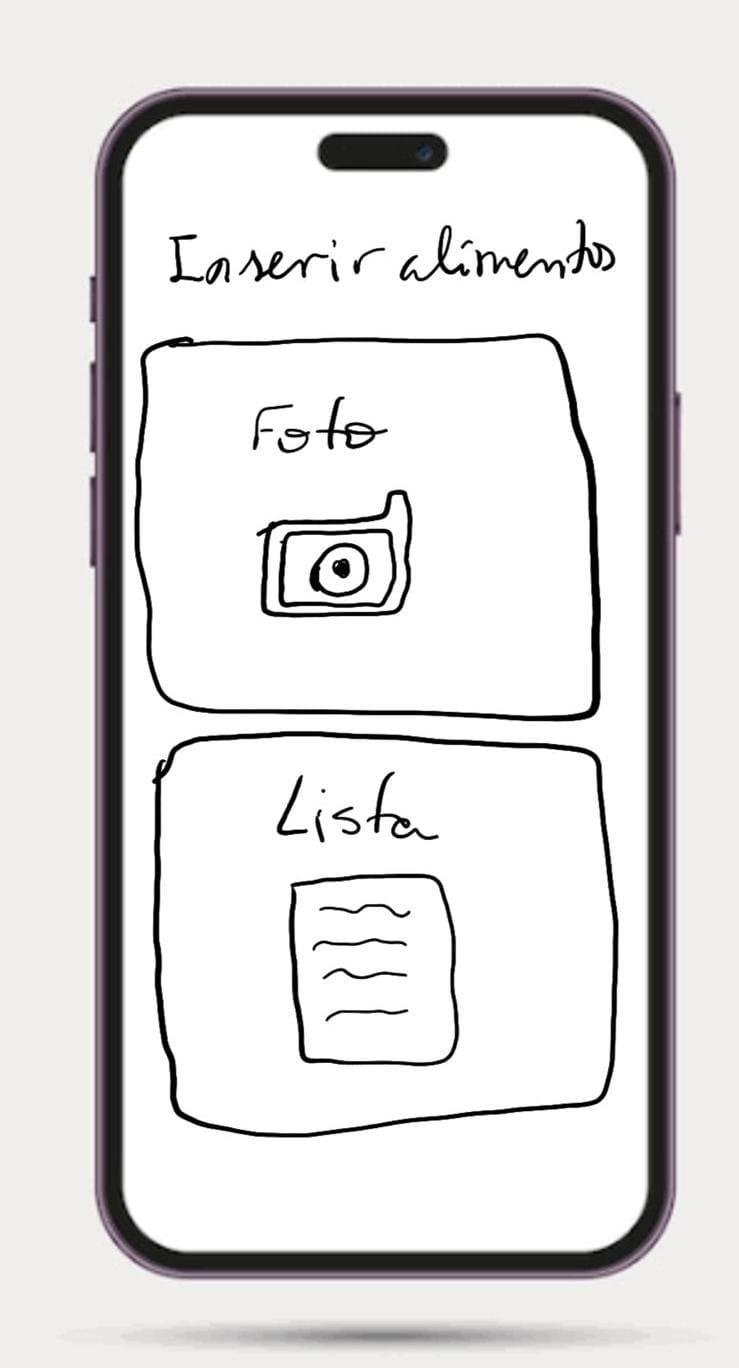 Inserir alimentos
Foto
Lista